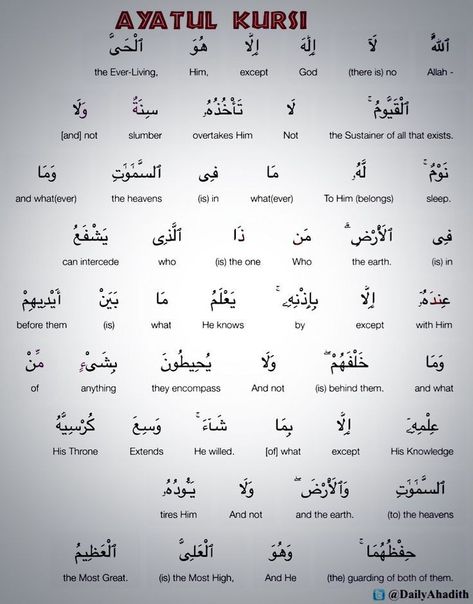 AYATUL KURSI
ٱللَّهُ لَآ إِلَٰهَ إِلَّا هُوَ ٱلْحَىُّ
the Ever-Living, Him, except God (there is) no Allah -
ٱلْقَيُّومُ ۚ لَا تَأْخُذُهُۥ سِنَةٌ وَلَا
[and] not slumber overtakes Him Not the Sustainer of all that exists.
نَوْمٌ ۚ لَّهُۥ مَا فِى ٱلسَّمَٰوَٰتِ وَمَا
and what(ever) the heavens (is) in what(ever) To Him (belongs) sleep.
فِى ٱلْأَرْضِ ۗ مَن ذَا ٱلَّذِى يَشْفَعُ
can intercede who (is) the one Who the earth. (is) in
عِندَهُۥٓ إِلَّا بِإِذْنِهِۦ ۚ يَعْلَمُ مَا بَيْنَ أَيْدِيهِمْ
before them (is) what He knows by except with Him
وَمَا خَلْفَهُمْ ۖ وَلَا يُحِيطُونَ بِشَىْءٍ مِّنْ
of anything they encompass And not (is) behind them. and what
عِلْمِهِۦٓ إِلَّا بِمَا شَآءَ ۚ وَسِعَ كُرْسِيُّهُ
His Throne Extends He willed. [of] what except His Knowledge
ٱلسَّمَٰوَٰتِ وَٱلْأَرْضَ ۖ وَلَا يَـُٔودُهُۥ
tires Him And not and the earth. (to) the heavens
حِفْظُهُمَا ۚ وَهُوَ ٱلْعَلِىُّ ٱلْعَظِيمُ
the Most Great. (is) the Most High, And He (the) guarding of both of them.
@DailyAhadith